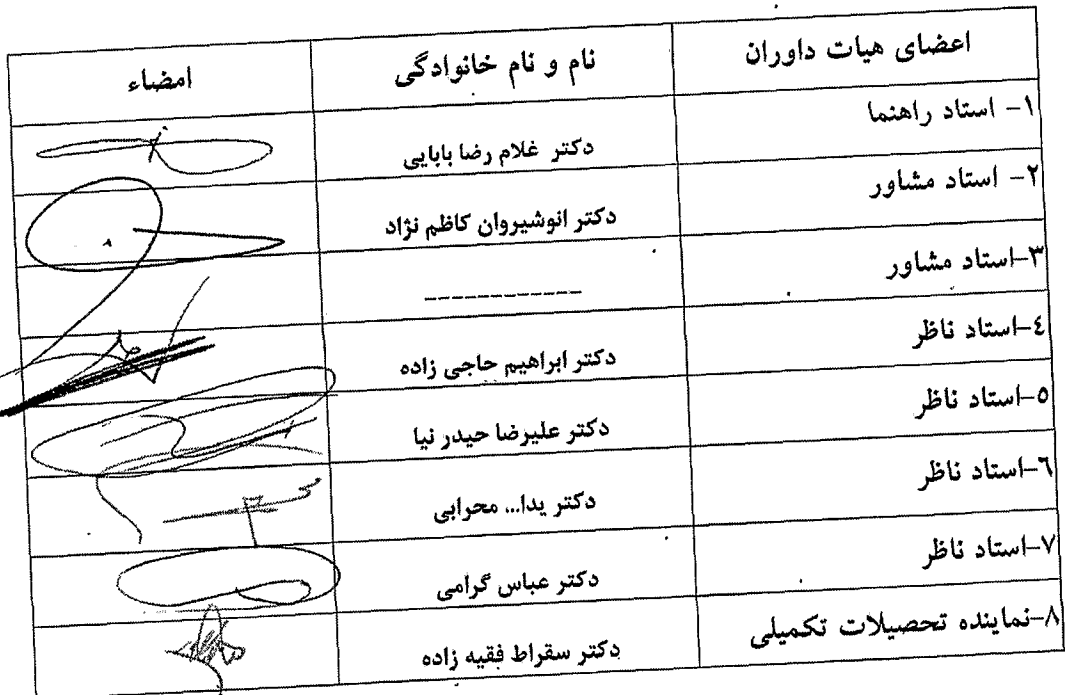 اعضای هیات داوران نام و نام خانوادگی امضاء
۱- استاد راهنما دکتر غلام رضا بابایی
۲- استاد مشاور دکتر انوشیروان کاظم نژاد
۳-استاد مشاور ------------
۴-استاد ناظر دکتر ابراهیم حاجی زاده
۵-استاد ناظر دکتر علیرضا حیدر نیا
۶-استاد ناظر دکتر یدا... محرابی
۷-استاد ناظر دکتر عباس گرامی
۸-نماینده تحصیلات تکمیلی دکتر سقراط فقیه زاده